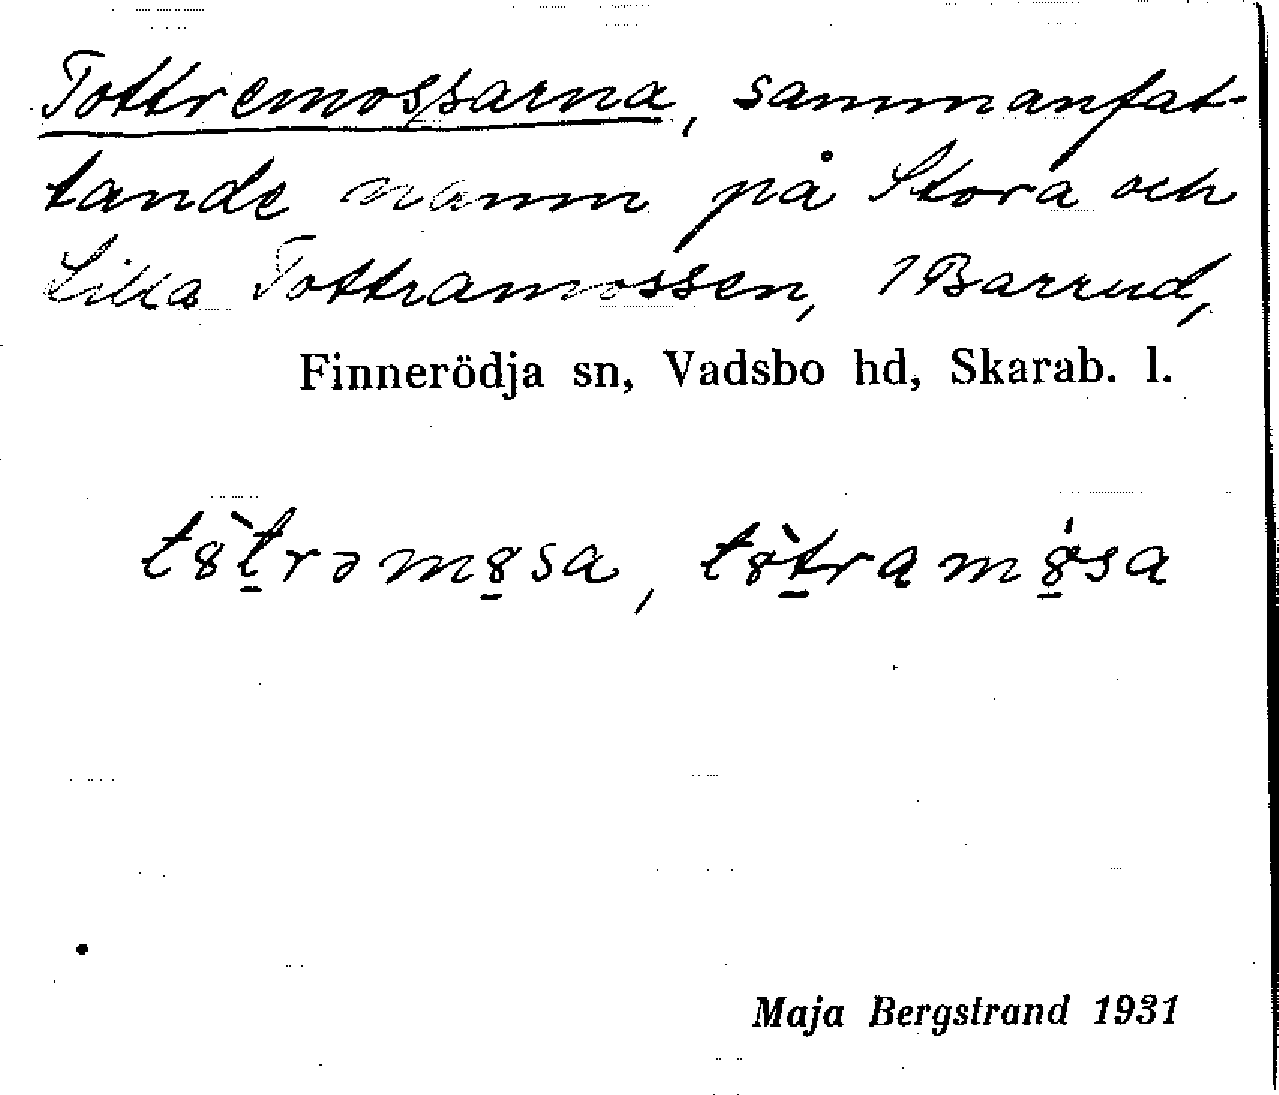 Tottremossarna, sammanfat-
tande namn på Stora och
Lilla Tottramossen, 1 Barrud,
Finnerödja sn, Vadsbo hd, Skarab. l.
t8̀t̠rəm8̠sa, t8̀t̠ram8̠́sa
Maja Bergstrand 1931